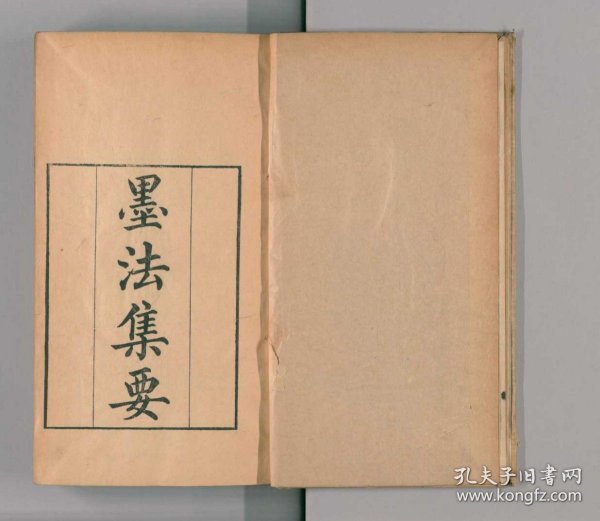 墨法集要
孔夫子旧书网
www.kongfz.com